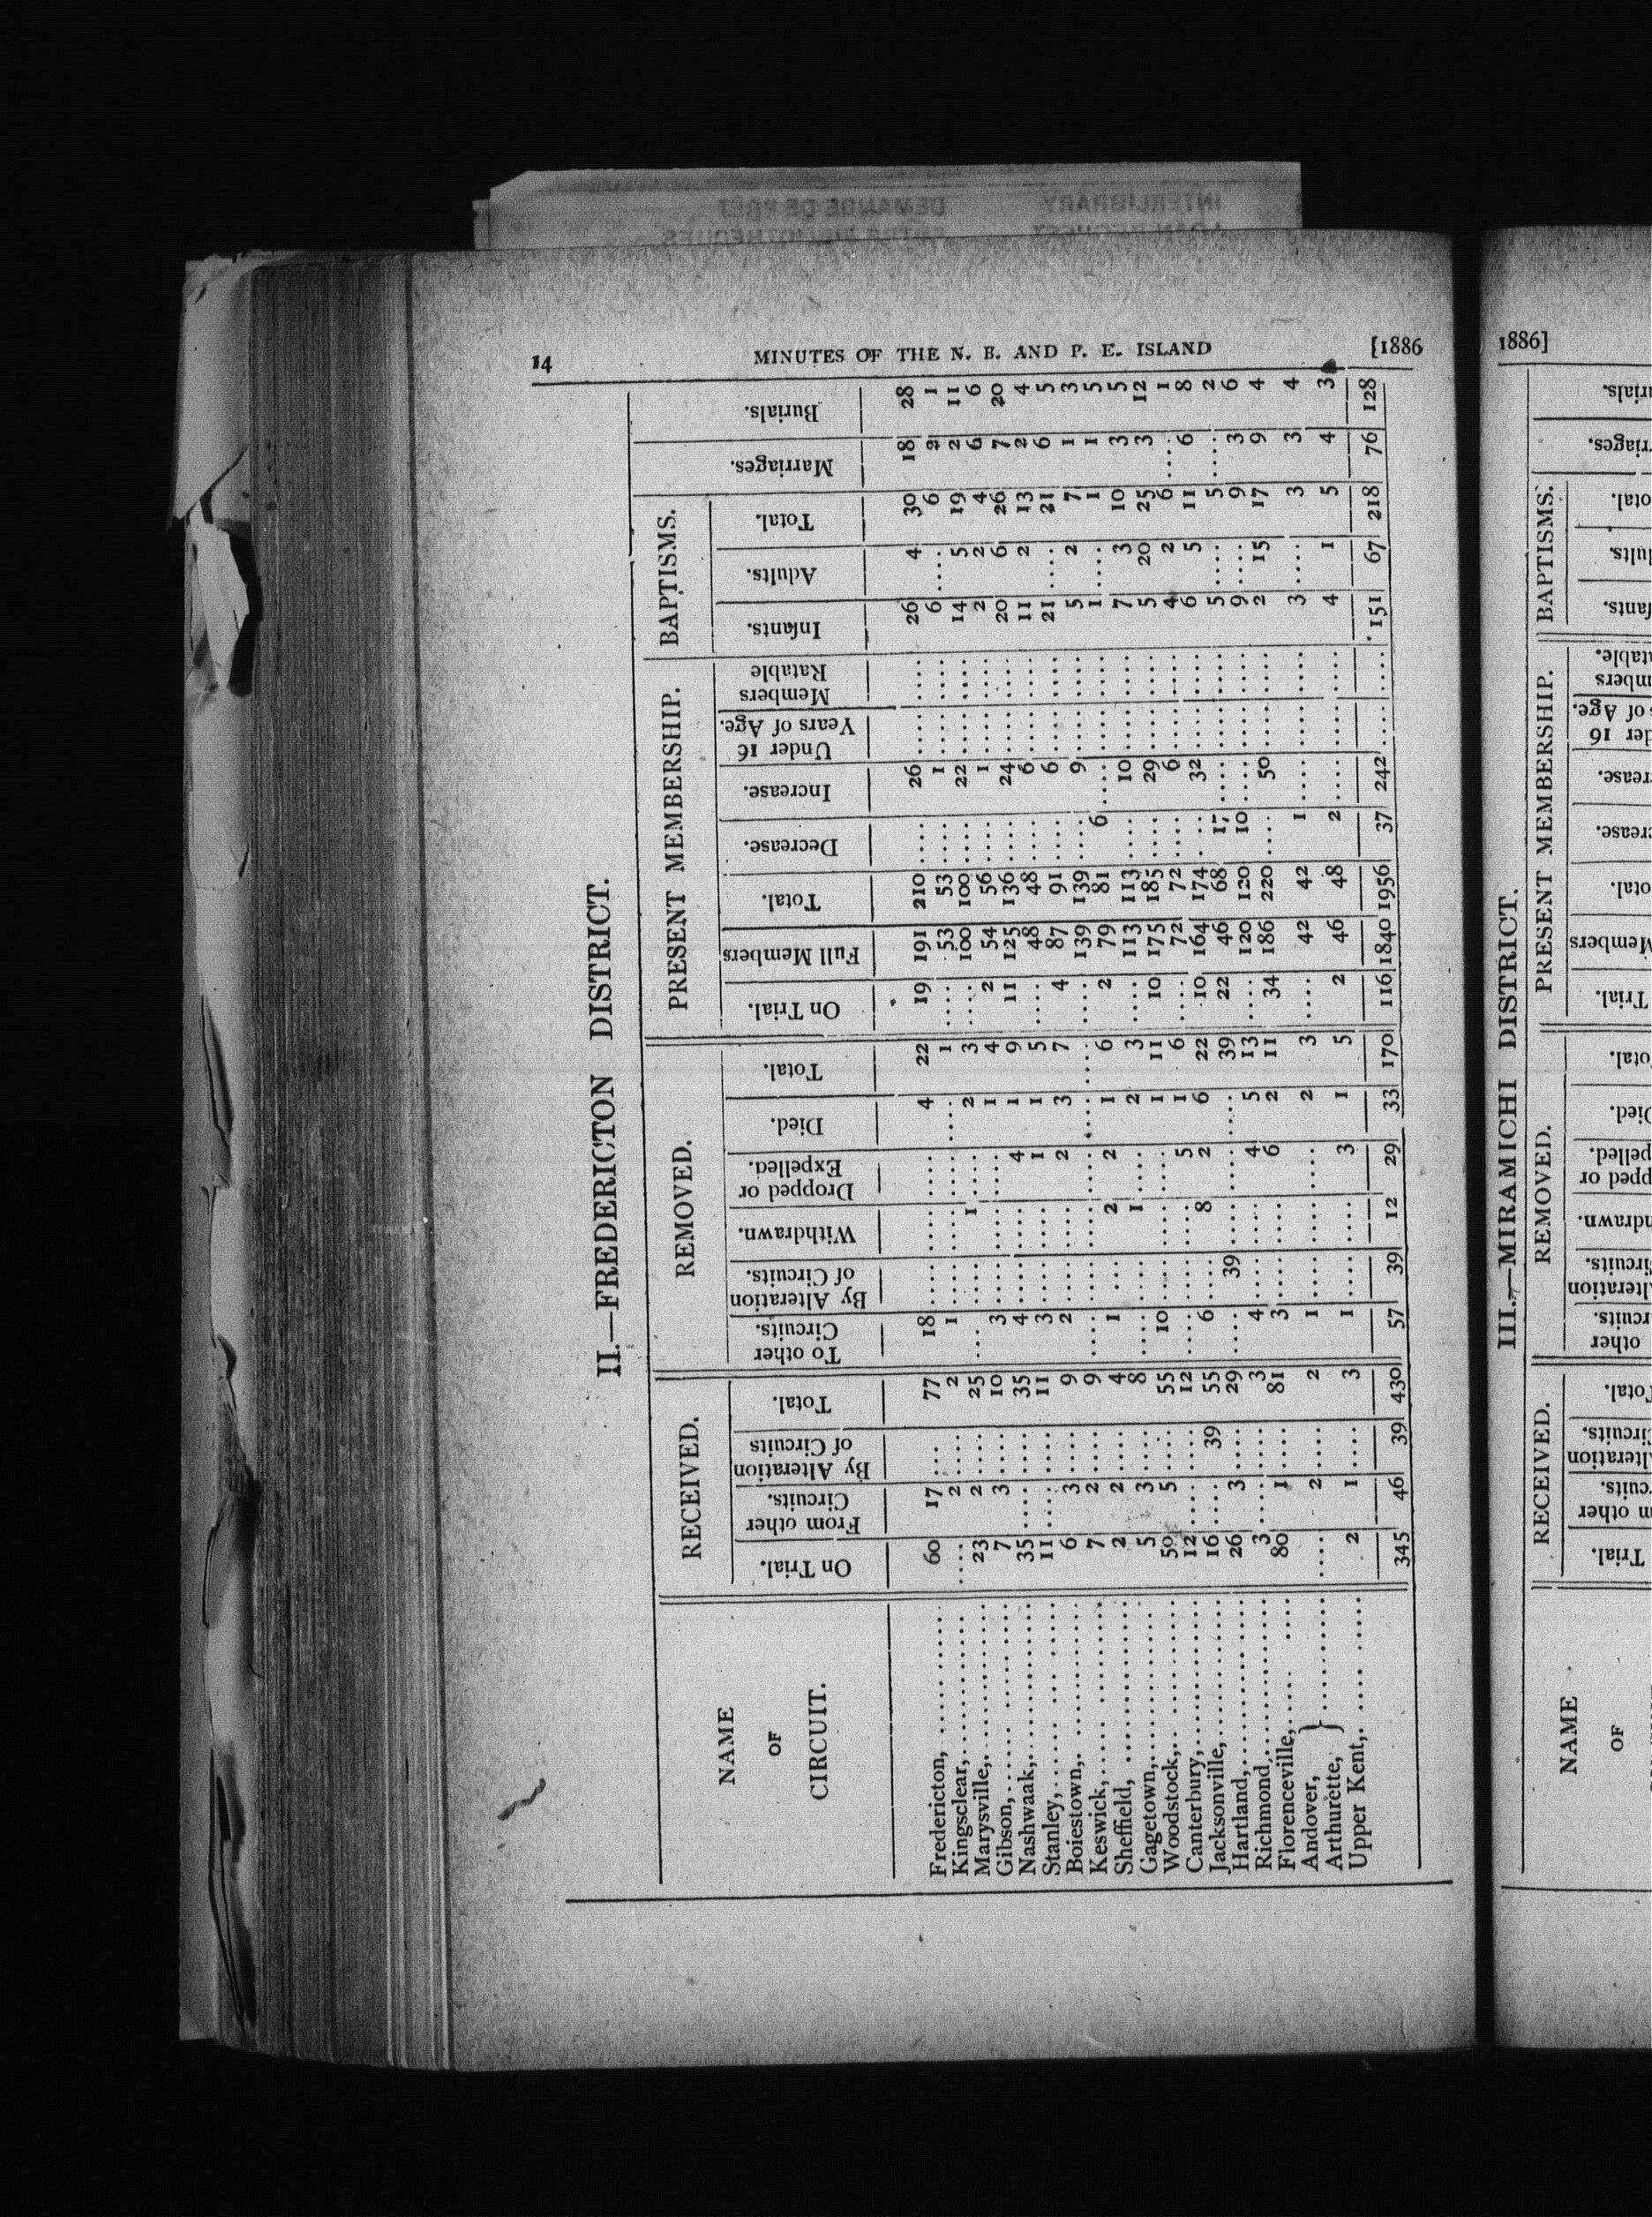 14 MINUTES OF THE N. B. AND P. E. ISLAND [1886
II.—FREDERICTON DISTRICT.
NAME
OF
CIRCUIT.
RECEIVED.
On Trial.
From other
Circuits.
By Alteration
of Circuits
Total.
REMOVED.
To other
Circuits.
By Alteration
of Circuits.
Withdrawn.
Dropped or
Expelled.
Died.
Total.
PRESENT MEMBERSHIP.
On Trial.
Full Members
Total.
Decrease.
Increase.
Under 16
Years of Age.
Members
Ratable
BAPTISMS.
Infants.
Adults.
Total.
Marriages.
Burials.
Fredericton, 60 17 .... 77 18 .... .... .... 4 22 19 191 210 .... 26 .... .... 26 4 30 18 28
Kingsclear, .... 2 .... 2 1 .... .... .... .... 1 .... 53 53 .... 1 .... .... 6 .... 6 2 1
Marysville, 23 2 .... 25 .... .... 1 .... 2 3 .... 100 100 .... 22 .... .... 14 5 19 2 11
Gibson, 7 3 .... 10 3 .... .... .... 1 4 2 54 56 .... 1 .... .... 2 2 4 6 6
Nashwaak, 35 .... .... 35 4 .... .... 4 1 9 11 125 136 .... 24 .... .... 20 6 26 7 20
Stanley, 11 .... .... 11 3 .... .... 1 1 5 .... 48 48 .... 6 .... .... 11 2 13 2 4
Boiestown, 6 3 .... 9 2 .... .... 2 3 7 4 87 91 .... 6 .... .... 21 .... 21 6 5
Keswick, 7 2 .... 9 .... .... .... .... .... .... .... 139 139 .... 9 .... .... 5 2 7 1 3
Sheffield, 2 2 .... 4 1 .... 2 2 1 6 2 79 81 6 .... .... .... 1 .... 1 1 5
Gagetown, 5 3 .... 8 .... .... 1 .... 2 3 .... 113 113 .... 10 .... .... 7 3 10 3 5
Woodstock, 50 5 .... 55 10 .... .... .... 1 11 10 175 185 .... 29 .... .... 5 20 25 3 12
Canterbury, 12 .... .... 12 .... .... .... 5 1 6 .... 72 72 .... 6 .... .... 4 2 6 .... 1
Jacksonville, 16 .... 39 55 6 .... 8 2 6 22 10 164 174 .... 32 .... .... 6 5 11 6 8
Hartland, 26 3 .... 29 .... 39 .... .... .... 39 22 46 68 17 .... .... .... 5 .... 5 .... 2
Richmond, 3 .... .... 3 4 .... .... 4 5 13 .... 120 120 10 .... .... .... 9 .... 9 3 6
Florenceville, 80 1 .... 81 3 .... .... 6 2 11 34 186 220 .... 50 .... .... 2 15 17 9 4
Andover,
Arthurette, } .... 2 .... 2 1 .... .... .... 2 3 .... 42 42 1 .... .... .... 3 .... 3 3 4
Upper Kent, 2 1 .... 3 1 .... .... 3 1 5 2 46 48 2 .... .... .... 4 1 5 4 3
345 46 39 430 57 39 12 29 33 170 116 1840 1956 37 242 .... .... 151 67 218 76 128
1886]
III.—MIRAMICHI DISTRICT.
NAME
OF
RECEIVED.
Trial.
REMOVED.
PRESENT MEMBERSHIP.
Trial.
Members
BAPTISMS.
INTERLIBRARY
DEMANDE DE PRÊT